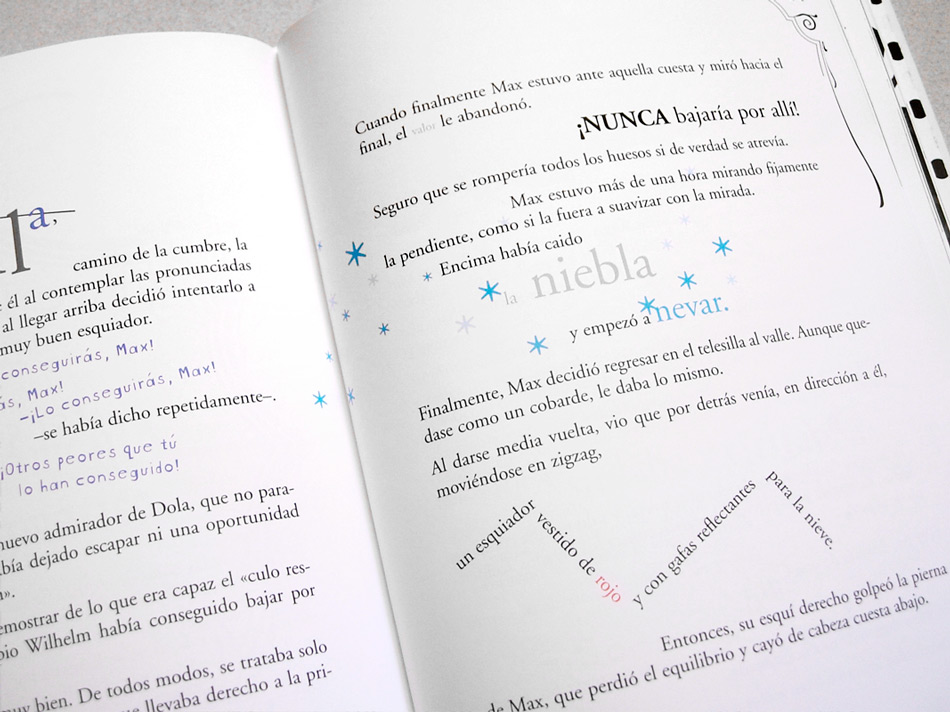 a,
camino de la cumbre, la
él al contemplar las pronunciadas
al llegar arriba decidió intentarlo a
muy buen esquiador.
conseguirás, Max!
ás, Max!
–¡Lo conseguirás, Max!
–se había dicho repetidamente–.
¡Otros peores que tú
lo han conseguido!
nuevo admirador de Dola, que no para-
bía dejado escapar ni una oportunidad
».
emostrar de lo que era capaz el «culo res-
pio Wilhelm había conseguido bajar por
muy bien. De todos modos, se trataba solo
llevaba derecho a la pri-
Cuando finalmente Max estuvo ante aquella cuesta y miró hacia el
final, el valor le abandonó.
¡NUNCA bajaría por allí!
Seguro que se rompería todos los huesos si de verdad se atrevía.
Max estuvo más de una hora mirando fijamente
la pendiente, como si la fuera a suavizar con la mirada.
Encima había caido
la niebla
y empezó a nevar.
Finalmente, Max decidió regresar en el telesilla al valle. Aunque que-
dase como un cobarde, le daba lo mismo.
Al darse media vuelta, vio que por detrás venía, en dirección a él,
moviéndose en zigzag,
un esquiador
vestido de rojo
y con gafas reflectantes
para la nieve.
Entonces, su esquí derecho golpeó la pierna
de Max, que perdió el equilibrio y cayó de cabeza cuesta abajo.